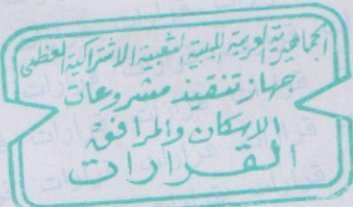 الجماهيرية العربية الليبية الشعبية الاشتراكية العظمى
جهاز تنفيذ مشروعات
الاسكان والمرافق
القرارات